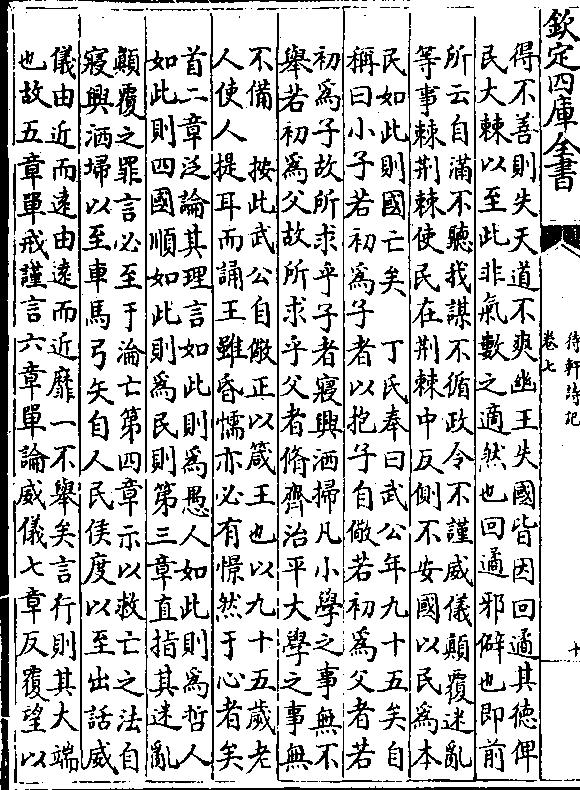 欽定四庫全書
待軒詩記
卷七
十
得不善則失天道不爽幽王失國皆因回遹其德俾
民大棘以至此非氣數之適然也回遹邪僻也即前
所云自滿不聽我謀不循政令不謹威儀顛覆迷亂
等事棘荆棘使民在荆棘中反側不安國以民為本
民如此則國亡矣　丁氏奉曰武公年九十五矣自
稱曰小子若初為子者以抱子自儆若初為父者若
初為子故所求乎子者寢興洒掃凡小學之事無不
舉若初為父故所求乎父者脩齊治平大學之事無
不備　按此武公自儆正以箴王也以九十五歲老
人使人提耳而誦王雖昏懦亦必有憬然于心者矣
首二章泛論其理言如此則為愚人如此則為哲人
如此則四國順如此則為民則第三章直指其迷亂
顛覆之罪言必至于淪亡第四章示以救亡之法自
寢興洒埽以至車馬弓矢自人民侯度以至出話威
儀由近而遠由遠而近靡一不舉矣言行則其大端
也故五章單戒謹言六章單論威儀七章反覆望以